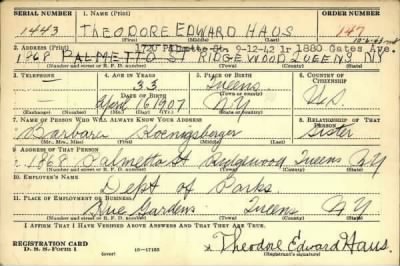 SERIAL NUMBER 1. NAME (Print) ORDER NUMBER
1443 THEODORE EDWARD HAUS 147
1720 Palmetto St. 9-12-42 1r 1880 Gates Ave.
2. ADDRESS (Print)
1868 PALMETTO ST RIDGEWOOD QUEENS NY
(Number and street or R. F. D. number) (Town) (County) (State)
3. TELEPHONE 4. AGE IN YEARS 5. PLACE OF BIRTH 6. COUNTRY OF CITIZENSHIP
— 33 Queens
DATE OF BIRTH (Town or county)
— April 16 1907 NY U.S.
(Exchange) (No.) (Mo.) (Day) (Yr.) (State or country)
7. NAME OF PERSON WHO WILL ALWAYS KNOW YOUR ADDRESS 8. RELATIONSHIP OF THAT PERSON
Barbara Koenigsberger Sister
(Mr., Mrs., Miss) (First) (Middle) (Last)
9. ADDRESS OF THAT PERSON
1868 Palmetto St Ridgewood Queens NY
(Number and street or R. F. D. number) (Town) (County) (State)
10. EMPLOYER'S NAME
Dept of Parks
11. PLACE OF EMPLOYMENT OR BUSINESS
Gardens Queens NY
(Number and street or R. F. D. number) (Town) (County) (State)
I AFFIRM THAT I HAVE VERIFIED ABOVE ANSWERS AND THAT THEY ARE TRUE.
REGISTRATION CARD
D. S. S. Form 1 (over) 16—17105 Theodore Edward Haus.
(Registrant's signature)